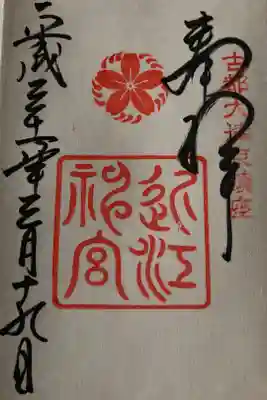 古都大津京鎮座
奉拝
近江
神宮
平成三十一年三月十九日